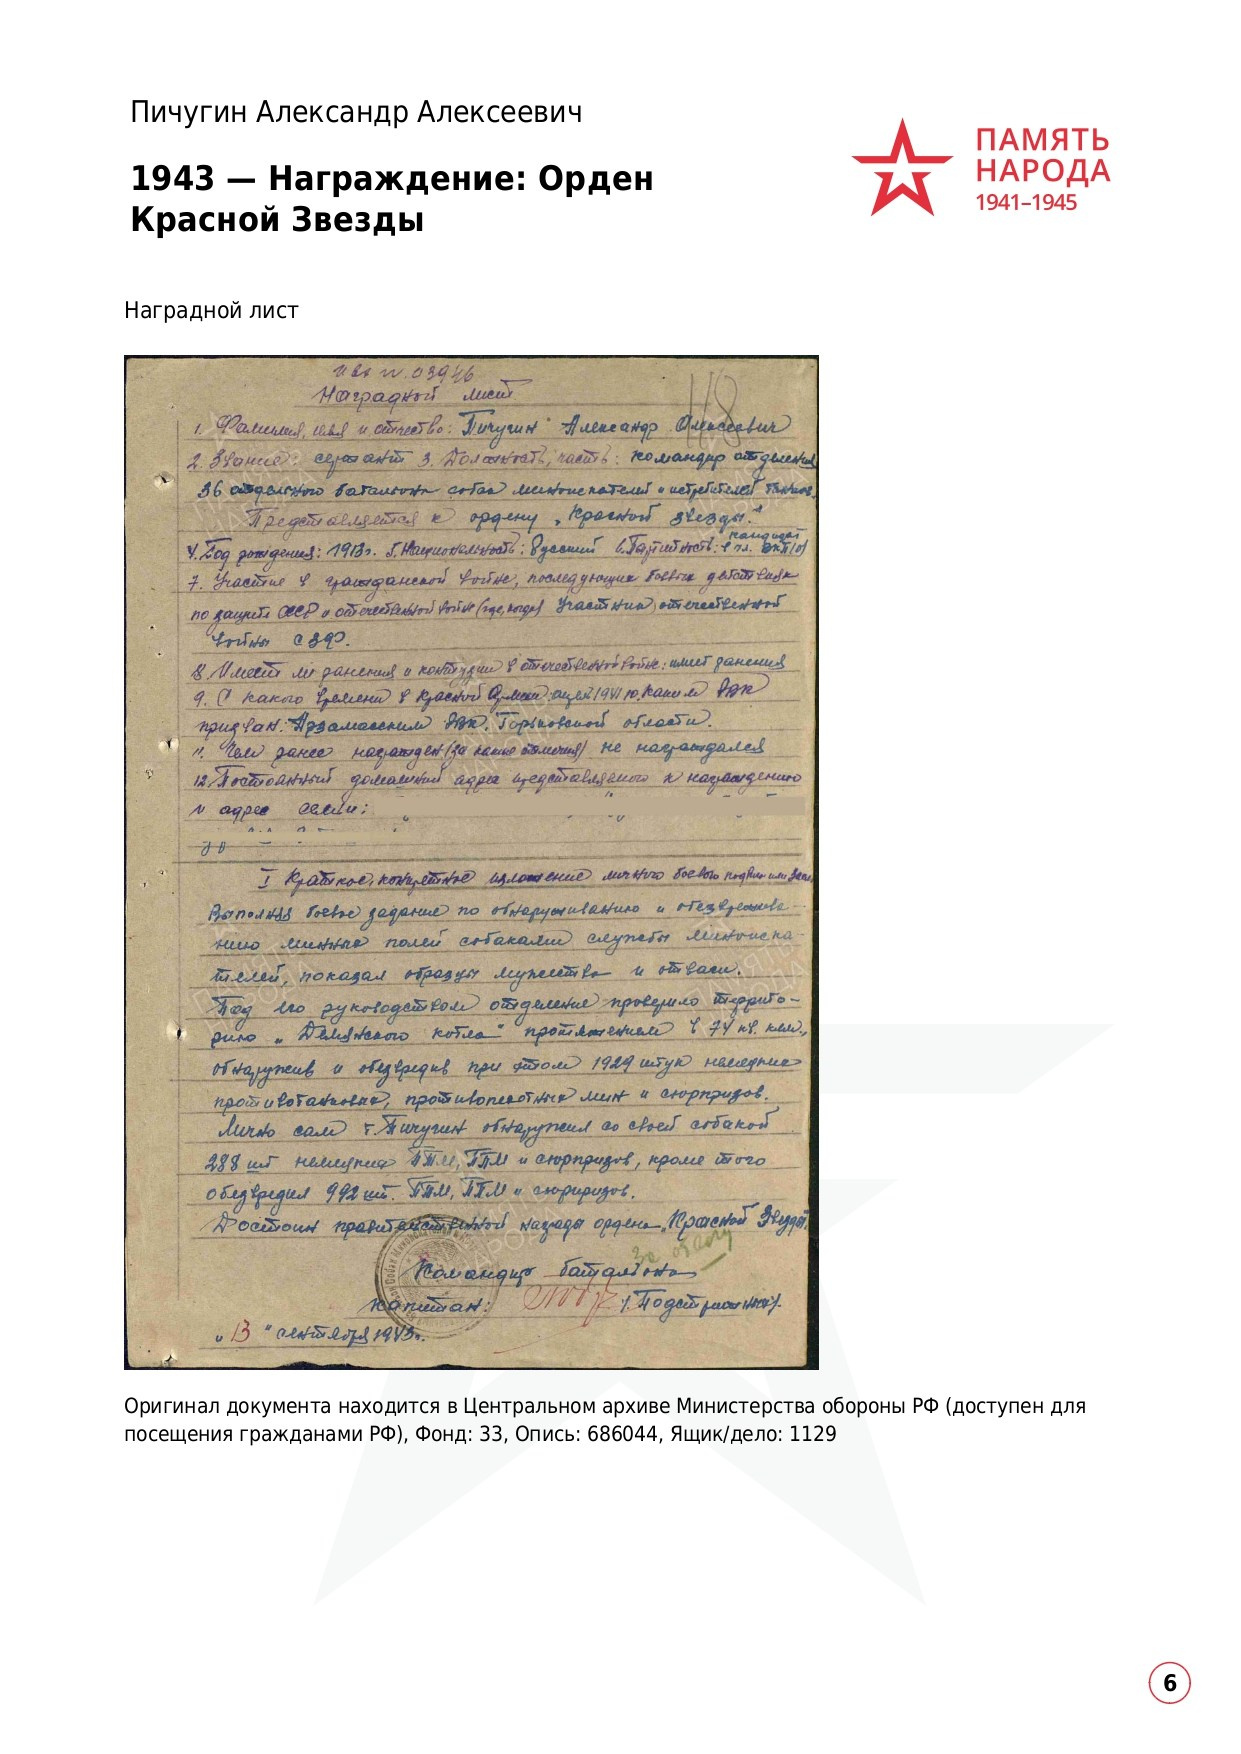 Пичугин Александр Алексеевич
1943 — Награждение: Орден
Красной Звезды
ПАМЯТЬ
НАРОДА
1941–1945
Наградной лист
Наградной лист
118
1. Фамилия, имя и отчество: Пичугин Александр Алексеевич
2. Звание: сержант 3. Должность, часть: командир отделения
36 отдельного батальона собак миноискателей и истребителей танков.
Представляется к ордену „Красной звезды."
4. Год рождения: 1913г. 5. Национальность: Русский 6. Партийность: кандидат
в чл. ВКП(б)
7. Участие в гражданской войне, последующих боевых действиях
по защите СССР и отечественной войне (где, когда) Участник отечественной
войны с
8. Имеет ли ранения и контузии в отечественной войне: имеет ранения
9. С какого времени в Красной Армии: 1941 10. Каким РВК
призван: Арзамасским РВК, Горьковской области.
11. Чем ранее награжден (за какие отличия) не награждался
12. Постоянный домашний адрес представляемого к награждению
и адрес семьи:
I Краткое, конкретное изложение личного боевого подвига или
Выполняя боевое задание по обнаруживанию и обезврежива-
нию минных полей собаками службы миноиска-
телей, показал образцы мужества и отваги.
Под его руководством отделение проверило террито-
рию „Демянского котла" протяжением в 74 кв. клм.,
обнаружив и обезвредив при этом 1929 штук немецких
противотанковых, противопехотных мин и сюрпризов.
Лично сам т. Пичугин обнаружил со своей собакой
288 шт немецких ПТМ, ППМ и сюрпризов, кроме того
обезвредил 992 шт. ПТМ, ППМ и сюрпризов.
Достоин правительственной награды ордена „Красной Звезды".
За отвагу
Командир батальона
капитан:
„13" сентября 1943г.
Оригинал документа находится в Центральном архиве Министерства обороны РФ (доступен для
посещения гражданами РФ), Фонд: 33, Опись: 686044, Ящик/дело: 1129
6